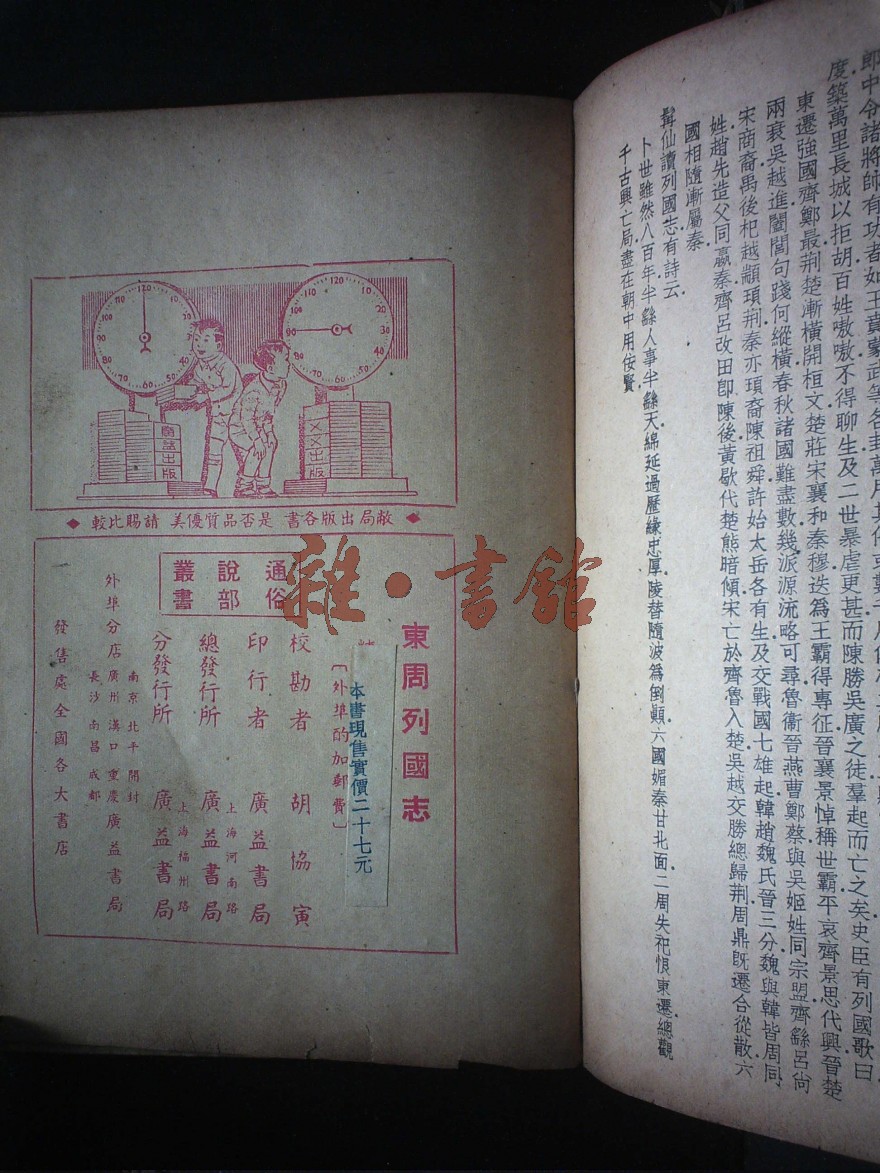 郎中令諸將帥有功者如王賁蒙武等各封萬戶其他或數千戶
度築萬里長城以拒胡百姓嗷嗷不得聊生及二世暴虐更甚而陳勝吳廣之徒羣起而亡之矣史臣有列國歌曰
東遷強國齊鄭最荆楚漸橫開桓文楚莊宋襄和秦穆迭爲王霸得專征晉襄景悼稱世霸平哀齊景思代興晉楚
兩衰吳越進闔閭句踐何縱橫春秋諸國難盡數幾派源流略可尋魯衞晉燕曹鄭蔡與吳姬姓同宗盟齊繇呂尙
宋商裔禹後杞越顓頊荆秦亦頊裔陳祖舜許始太岳各有生及交戰國七雄起韓趙魏氏晉三分魏與韓皆周同
姓趙先造父同嬴秦齊呂改田卽陳後黃歇代楚熊暗傾宋亡於齊魯入楚吳越交勝總歸荆周鼎旣遷合從散六
國相隨漸屬秦
髯仙讀列國志有詩云
卜世雖然八百年半繇人事半繇天綿延過歷緣忠厚陵替隨波爲倒顛六國媚秦甘北面二周失祀恨東遷總觀
千古興亡局盡在朝中用佞賢
廣益出版
××出版
敝局出版各書 是否品質優美 請賜比較
東周列國志
通俗
說部
叢書
本書現售實價二十七元
〔外埠酌加郵費〕
校勘者 胡協寅
印行者 廣益書局
上海河南路
總發行所 廣益書局
上海福州路
分發行所 廣益書局
南京 北平 開封
外埠分店 廣州 漢口 重慶 廣益書局
長沙 南昌 成都
發售處全國各大書店
雜·書館